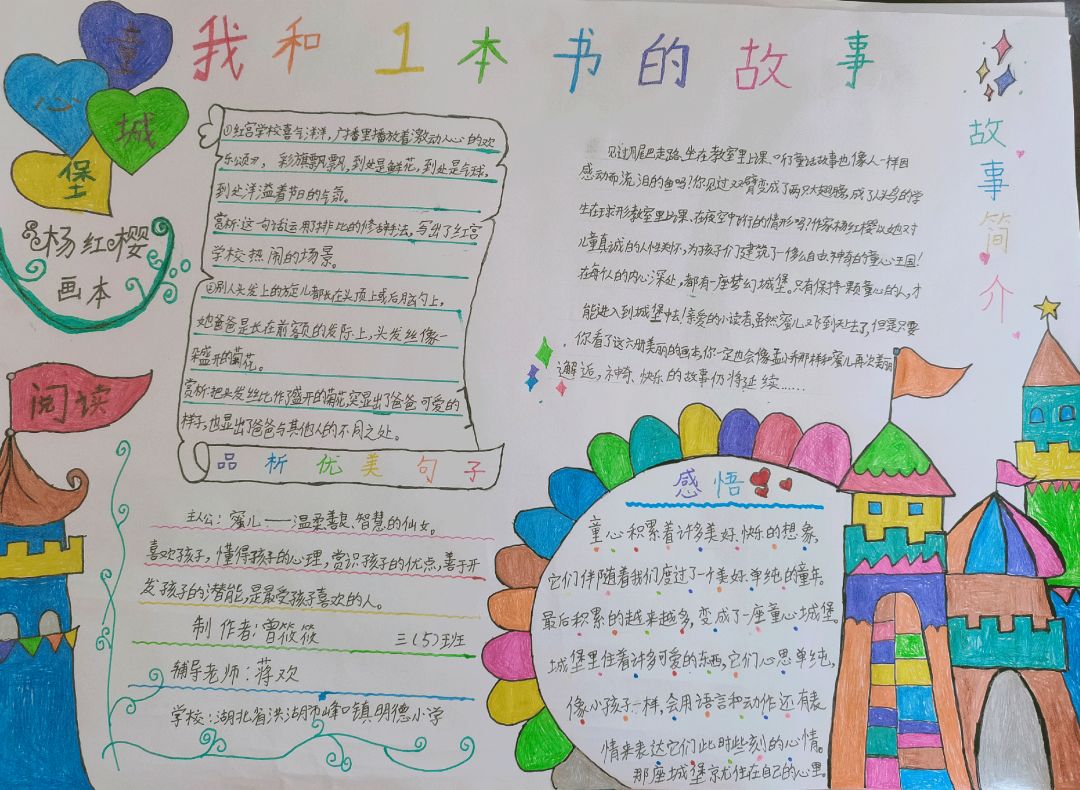 我和1本书的故事
童
心
城
堡
杨红樱
画本
阅读
①红宫学校喜气洋洋，广播里播放着激动人心的欢
乐颂才，彩旗飘飘，到处是鲜花，到处是气球，
到处洋溢着节日的气氛。
赏析：这句话运用了排比的修辞手法，写出了红宫
学校热闹的场景。
②别人头发上的旋儿都长在头顶上或后脑勺上，
她爸爸是长在前额的发际上，头发丝像一
朵盛开的菊花。
赏析：把头发丝比作了盛开的菊花，突显出了爸爸可爱的
样子，也显出了爸爸与其他人的不同之处。
品析优美句子
主人公：蜜儿——温柔善良、智慧的仙女。
喜欢孩子，懂得孩子的心理，赏识孩子的优点，善于开
发孩子的潜能，是最受孩子喜欢的人。
制作者：曾筱筱 三（5）班
辅导老师：蒋欢
学校：湖北省洪湖市峰口镇明德小学
故事简介
见过用尾巴走路、坐在教室里上课、听童话故事也像人一样因
感动而流泪的鱼吗？你见过双臂变成了两只大翅膀，成了人鸟的学
生在球形教室里上课、在夜空中飞行的情形吗？作家杨红樱以她对
儿童真诚的人性关怀，为孩子们建筑了一个多么自由神奇的童心王国！
在每个人的内心深处，都有一座梦幻城堡。只有保持一颗童心的人，才
能进入到城堡中去！亲爱的小读者，虽然蜜儿又飞到天上去了，但是只要
你看了这六册美丽的画本，你一定也会像孟小乔那样和蜜儿再次美丽
邂逅，神奇、快乐的故事仍将延续……
感悟
童心积累着许多美好、快乐的想象，
它们伴随着我们度过了一个美好、单纯的童年。
最后积累的越来越多，变成了一座童心城堡。
城堡里住着许多可爱的东西，它们心思单纯，
像小孩子一样，会用语言和动作还有表
情来表达它们此时些刻的心情。
那座城堡就住在自己的心里。